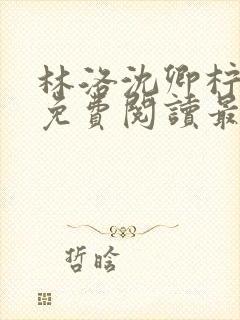 林洛沈卿柠
免費閱讀最
哲晗